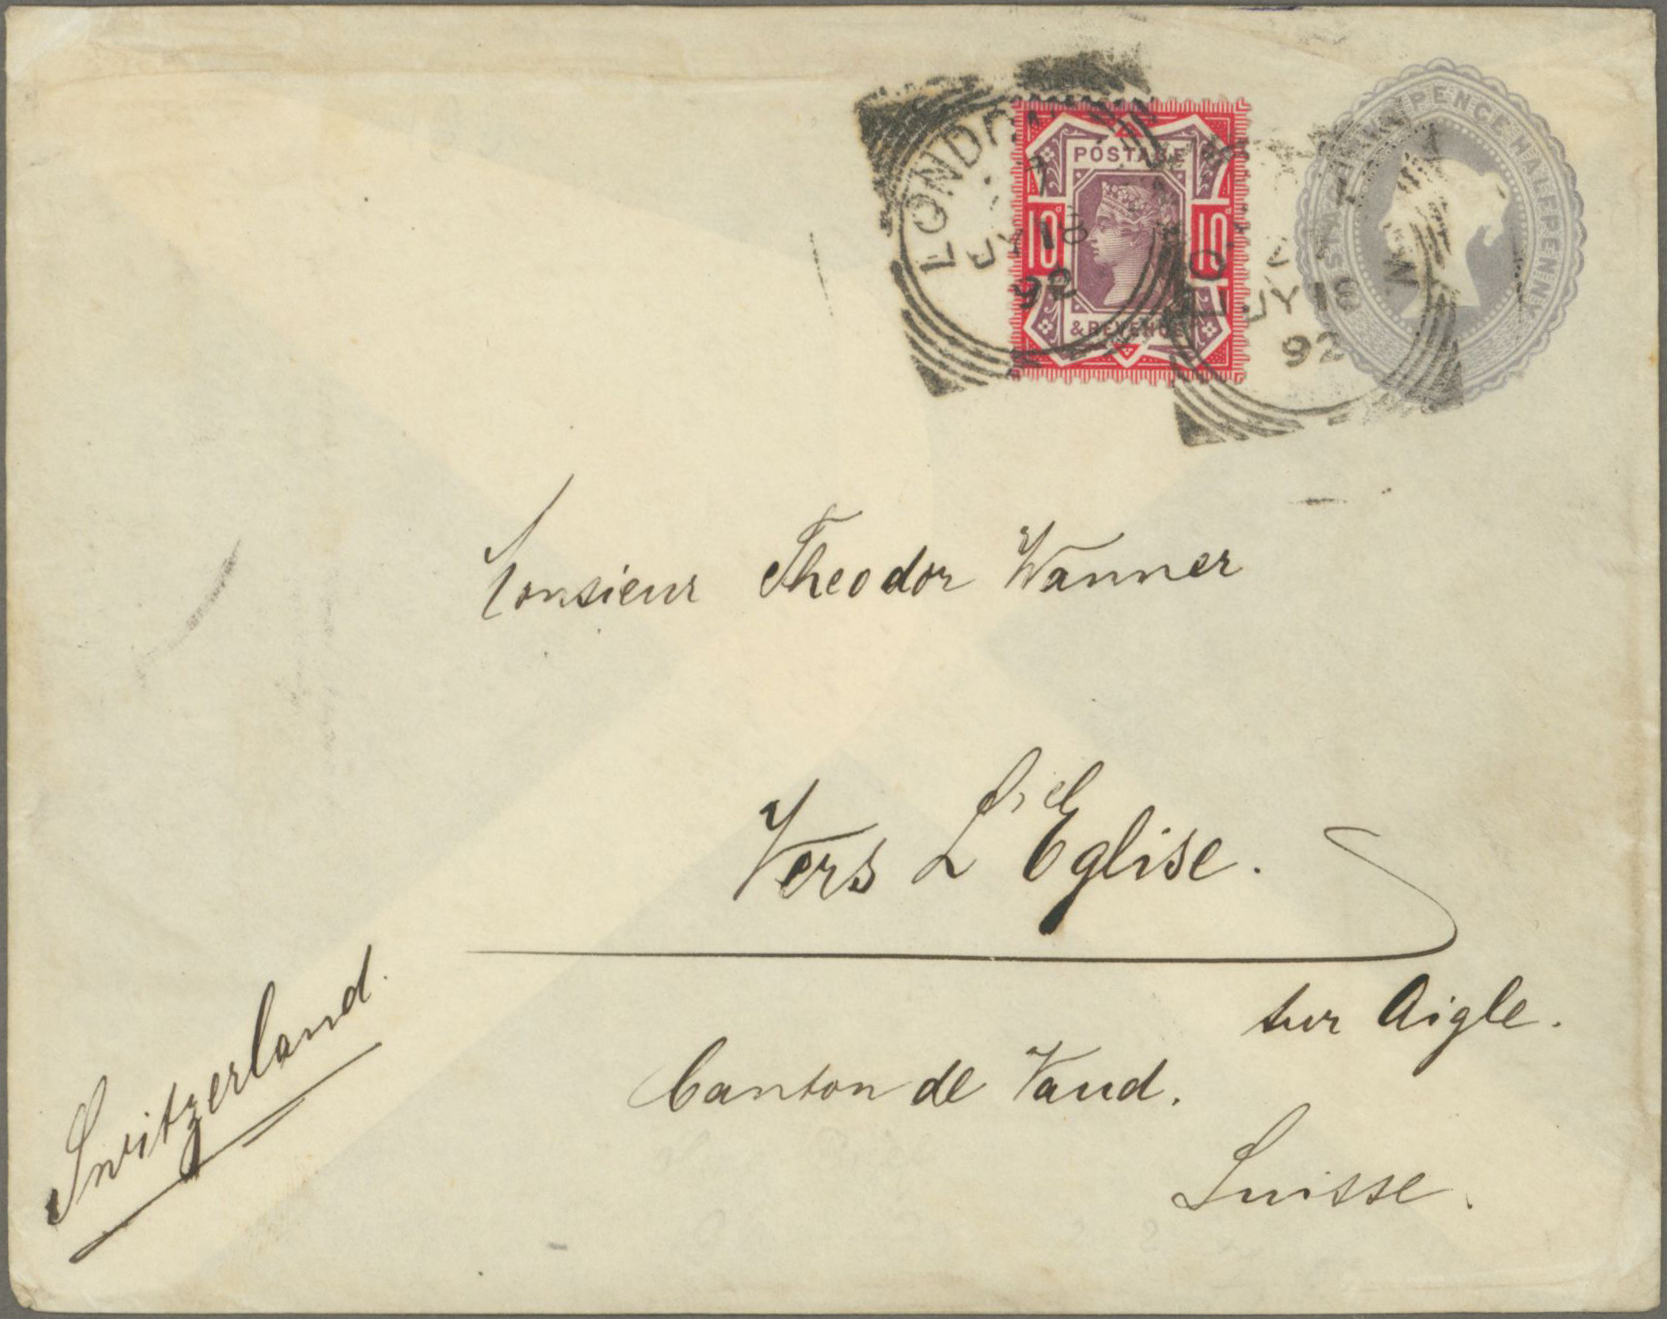 LONDON
JY 18
92
POSTAGE
10d 10d
& REVENUE
JY 18
92
PENCE HALFPENNY
Monsieur Theodor Wanner
Vers L'Eglise.
sur Aigle.
Canton de Vaud.
Suisse.
Switzerland.